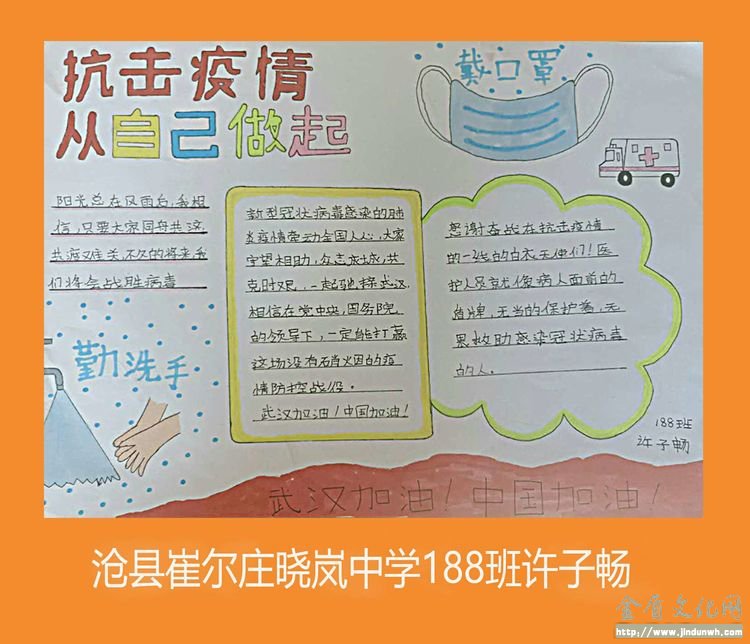 抗击疫情
从自己做起
戴口罩
阳光总在风雨后,我相
信,只要大家同舟共济
共渡难关,不久的将来我
们将会战胜病毒
新型冠状病毒感染的肺
炎疫情牵动全国人心,大家
守望相助,众志成城,共
克时艰,一起驰援武汉.
相信在党中央,国务院
的领导下,一定能打赢
这场没有硝烟的疫
情防控战役。
武汉加油!中国加油!
感谢奋战在抗击疫情
的一线的白衣天使们!医
护人员就像病人面前的
盾牌,无当的保护着,无
畏救助感染冠状病毒
的人。
勤洗手
188班
许子畅
武汉加油!中国加油!
沧县崔尔庄晓岚中学188班许子畅
金盾文化网
http://www.jindunwh.com